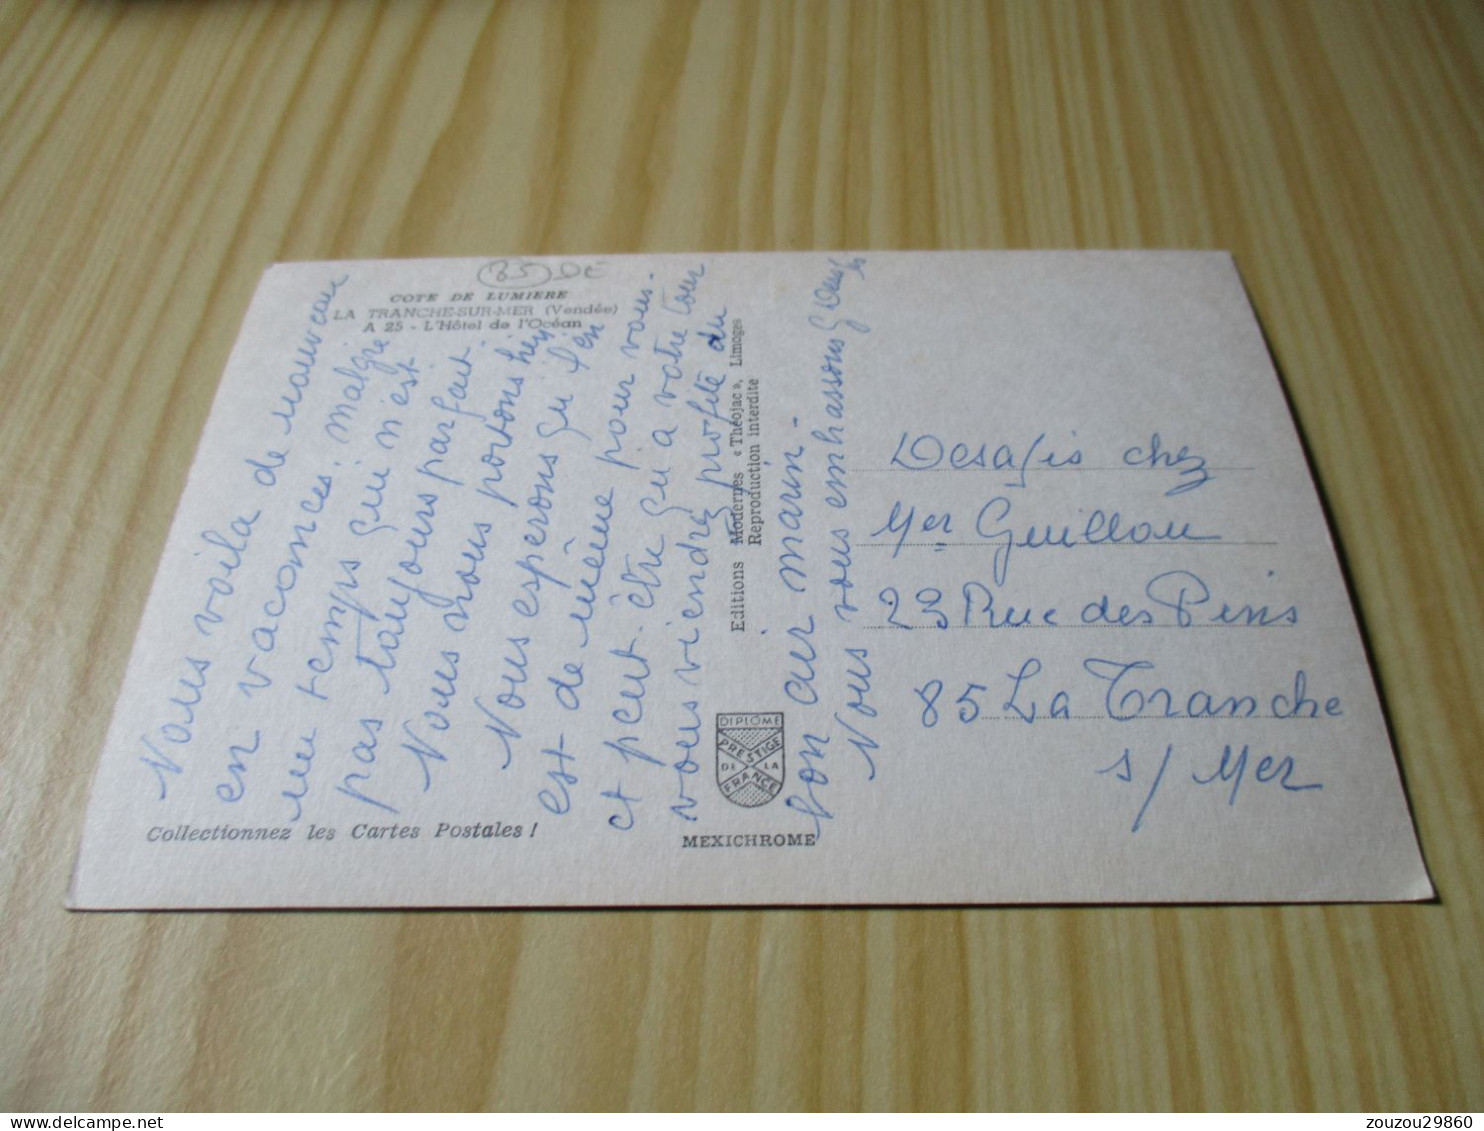 85 DE
COTE DE LUMIERE
LA TRANCHE-SUR-MER (Vendée)
A 25 - L'Hôtel de l'Océan
Nous voila de nouveau
en vacances. malgre
un temps qui n'est
pas toujours parfait.
Nous nous portons bien
Nous esperons qu'il en
est de même pour vous.
et peut-être qu'a votre tour
vous viendrez profité du
bon air marin.
Nous vous embrassons
Editions Modernes « Théojac », Limoges
Reproduction interdite
DIPLÔME
PRESTIGE
DE LA
FRANCE
Collectionnez les Cartes Postales !
MEXICHROME
Desafis chez
Mer Guillou
23 Rue des Pins
85 La Tranche
s/ Mer
zouzou29860